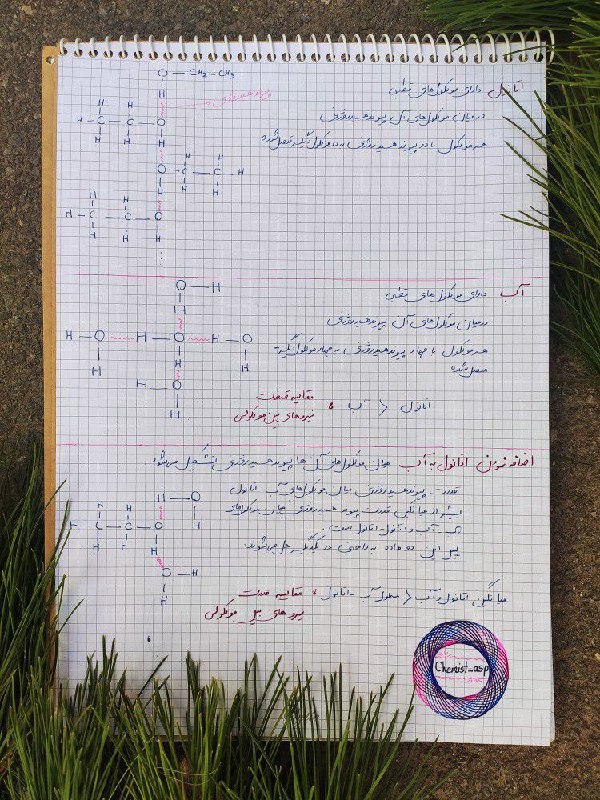 O — CH₂ — CH₃
اتانول دارای مولکول‌های قطبی
پیوند هیدروژنی
در میان مولکول‌های آن پیوند هیدروژنی
هر مولکول با دو پیوند هیدروژنی به دو مولکول دیگر متصل شده
آب دارای مولکول‌های قطبی
در میان مولکول‌های آن پیوند هیدروژنی
هر مولکول با چهار پیوند هیدروژنی به چهار مولکول دیگر
متصل شده
اتانول < آب : مقایسه قدرت
نیروهای بین مولکولی
اضافه نمودن اتانول به آب میان مولکول‌های آن‌ها پیوند هیدروژنی تشکیل می‌شود
قدرت پیوند هیدروژنی میان مولکول‌های آب اتانول
بیشتر از میانگین قدرت پیوند هیدروژنی میان مولکول‌های
آب و اتانول است
بنابراین دو ماده به راحتی در یکدیگر حل می‌شوند
میانگین اتانول و آب < محلول آب اتانول : مقایسه قدرت
نیروهای بین مولکولی
Chemist_asp